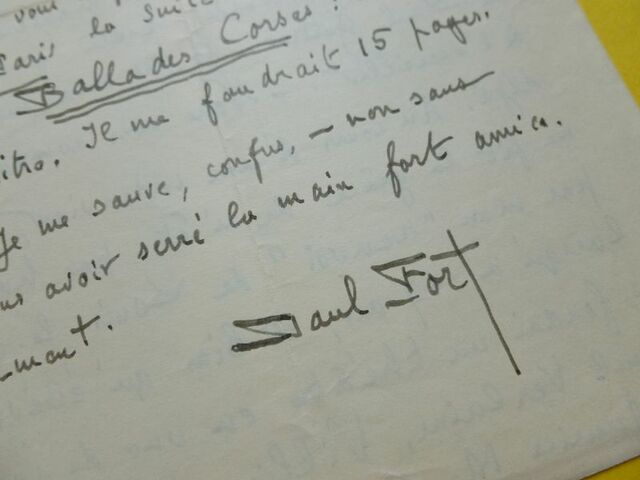 vous
Paris la suite
Ballades Corses
itro. Il me faudrait 15 pages.
Je me sauve, confus, – non sans
avoir serré la main fort amica-
-ment.
Paul Fort